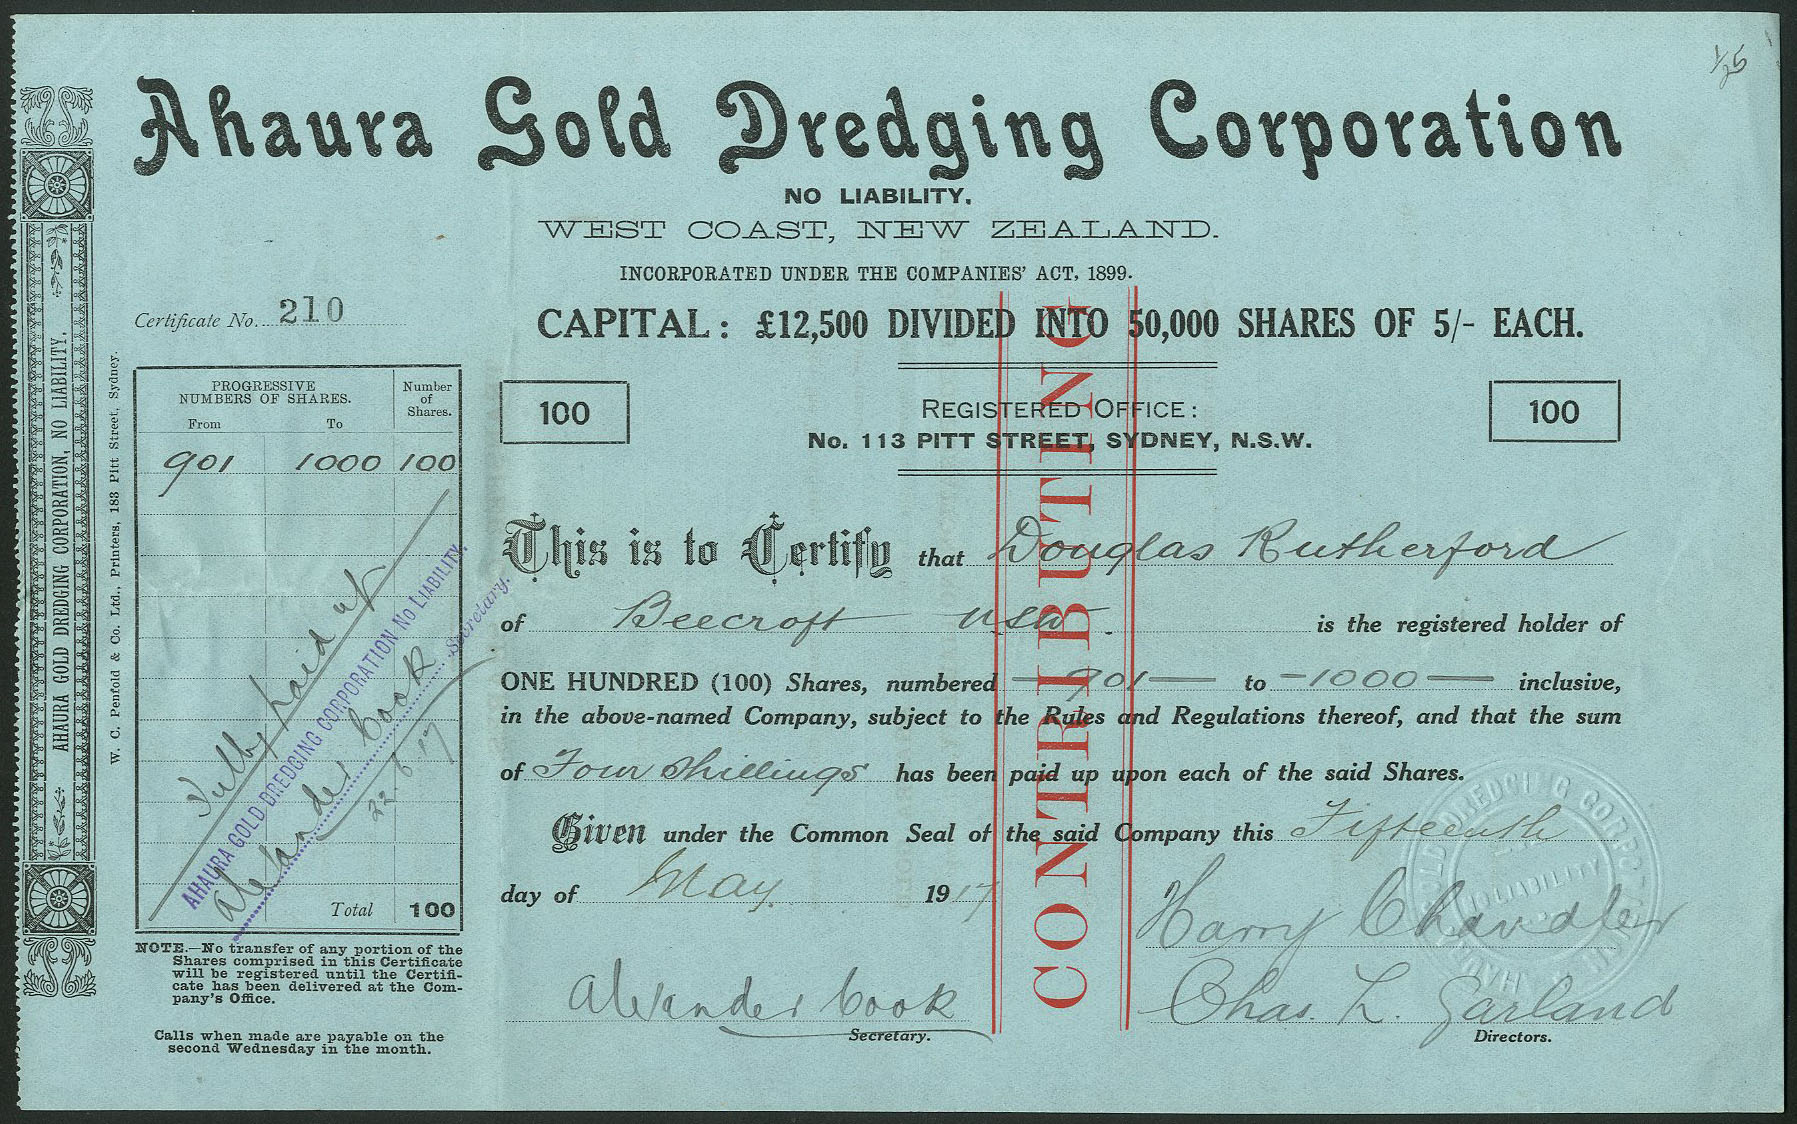 1/25
Ahaura Gold Dredging Corporation
NO LIABILITY.
WEST COAST, NEW ZEALAND.
INCORPORATED UNDER THE COMPANIES' ACT, 1899.
Certificate No. 210
CAPITAL: £12,500 DIVIDED INTO 50,000 SHARES OF 5/- EACH.
100
REGISTERED OFFICE:
No. 113 PITT STREET, SYDNEY, N.S.W.
100
CONTRIBUTING
AHAURA GOLD DREDGING CORPORATION, NO LIABILITY.
W. C. Penfold & Co. Ltd., Printers, 183 Pitt Street, Sydney.
PROGRESSIVE NUMBERS OF SHARES.
Number of Shares.
From To
901 1000 100
Fully paid up
AHAURA GOLD DREDGING CORPORATION NO LIABILITY.
Alexander Cook Secretary.
22.6.17
Total 100
NOTE.—No transfer of any portion of the
Shares comprised in this Certificate
will be registered until the Certifi-
cate has been delivered at the Com-
pany's Office.
Calls when made are payable on the
second Wednesday in the month.
This is to Certify that Douglas Rutherford
of Beecroft NSW. is the registered holder of
ONE HUNDRED (100) Shares, numbered —901— to —1000— inclusive,
in the above-named Company, subject to the Rules and Regulations thereof, and that the sum
of Four Shillings has been paid up upon each of the said Shares.
Given under the Common Seal of the said Company this Fifteenth
day of May. 1917
Harry Chandler
Alexander Cook
Secretary.
Chas. L. Garland
Directors.
NO LIABILITY